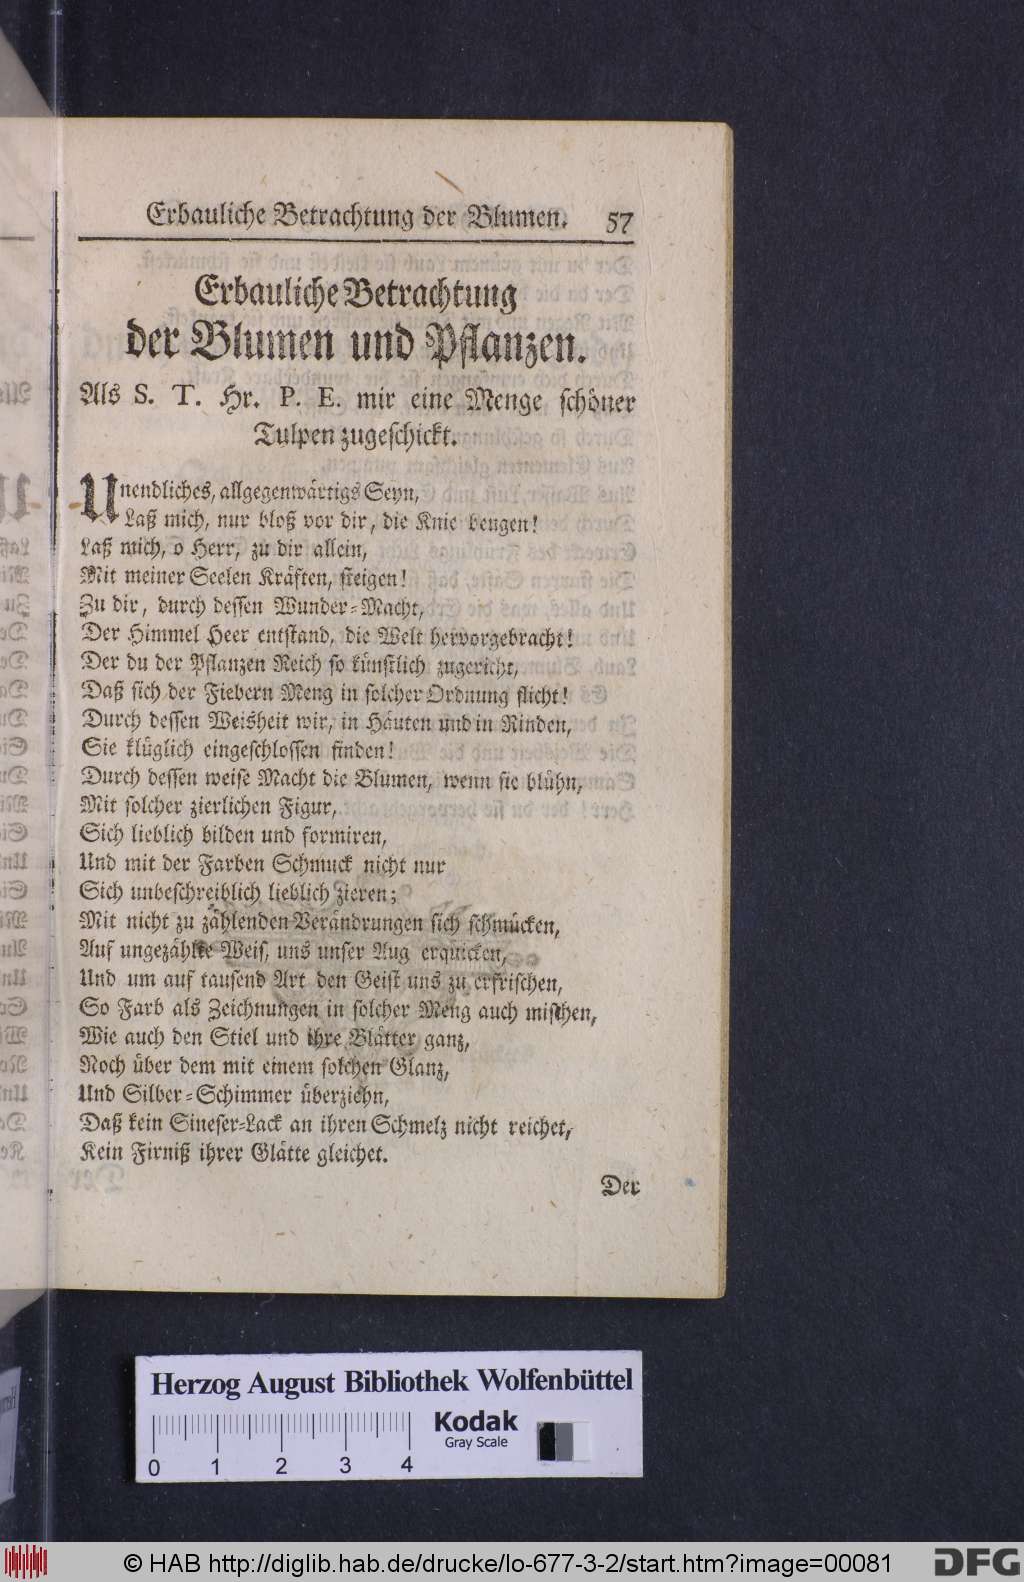 Erbauliche Betrachtung der Blumen. 57
Erbauliche Betrachtung
der Blumen und Pflanzen.
Als S. T. Hr. P. E. mir eine Menge schöner
Tulpen zugeschickt.
Unendliches, allgegenwärtigs Seyn,
Laß mich, nur bloß vor dir, die Knie beugen!
Laß mich, o Herr, zu dir allein,
Mit meiner Seelen Kräften, steigen!
Zu dir, durch dessen Wunder-Macht,
Der Himmel Heer entstand, die Welt hervorgebracht!
Der du der Pflanzen Reich so künstlich zugericht,
Daß sich der Fiebern Meng in solcher Ordnung flicht!
Durch dessen Weisheit wir, in Häuten und in Rinden,
Sie klüglich eingeschlossen finden!
Durch dessen weise Macht die Blumen, wenn sie blühn,
Mit solcher zierlichen Figur,
Sich lieblich bilden und formiren,
Und mit der Farben Schmuck nicht nur
Sich unbeschreiblich lieblich zieren;
Mit nicht zu zählenden Verändrungen sich schmücken,
Auf ungezählte Weis, uns unser Aug erquicken,
Und um auf tausend Art den Geist uns zu erfrischen,
So Farb als Zeichnungen in solcher Meng auch mischen,
Wie auch den Stiel und ihre Blätter ganz,
Noch über dem mit einem solchen Glanz,
Und Silber-Schimmer überziehn,
Daß kein Sineser-Lack an ihren Schmelz nicht reichet,
Kein Firniß ihrer Glätte gleichet.
Der
Herzog August Bibliothek Wolfenbüttel
Kodak
Gray Scale
0 1 2 3 4
© HAB http://diglib.hab.de/drucke/lo-677-3-2/start.htm?image=00081
DFG